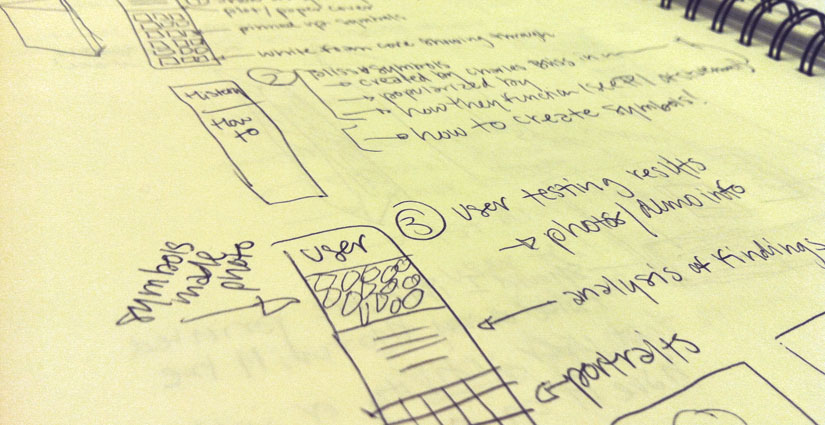 plot / paper cover
pinned up symbols
white foam core showing through
② blissymbols
→ created by Charles Bliss in
→ popularized by
→ how they function
→ how to create symbols!
History
How
to
③ user testing results
→ photos/demo info
user
symbols
made
photo
analysis of findings
portraits